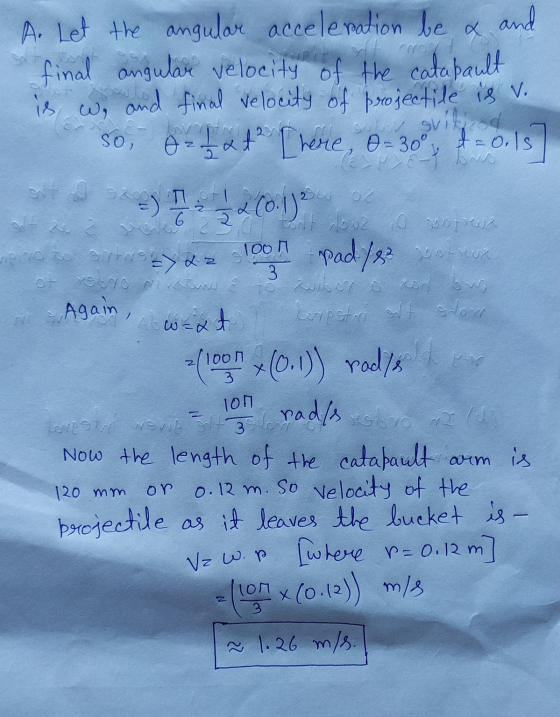 A. Let the angular acceleration be α and
final angular velocity of the catapault
is ω, and final velocity of projectile is V.
so, θ = 1/2 αt² [here, θ = 30°, t = 0.1s]
=> π/6 = 1/2 α(0.1)²
=> α = 100π/3 rad/s²
Again, ω = αt
= (100π/3 × (0.1)) rad/s
= 10π/3 rad/s
Now the length of the catapault arm is
120 mm or 0.12 m. So velocity of the
projectile as it leaves the bucket is –
V = ω.r [where r = 0.12 m]
= (10π/3 × (0.12)) m/s
≈ 1.26 m/s.